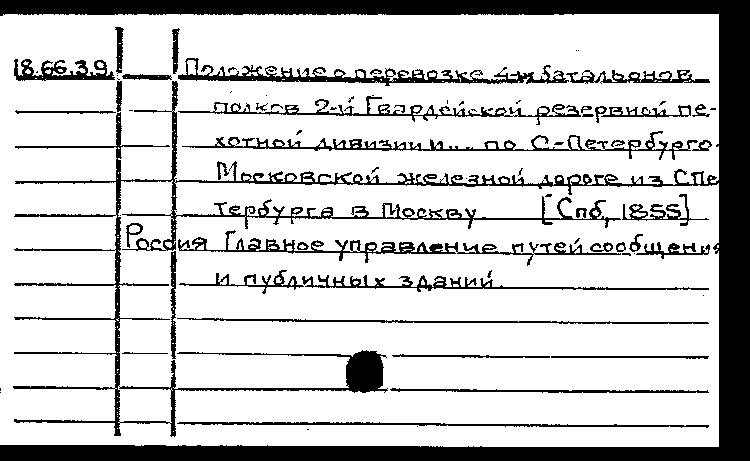 18.66.3.9. Положение о перевозке 4-х батальонов
полков 2-й Гвардейской резервной пе-
хотной дивизии и... по С-Петербурго-
Московской железной дороге из С Пе
тербурга в Москву. [Спб, 1855]
Россия Главное управление путей сообщения
и публичных зданий.